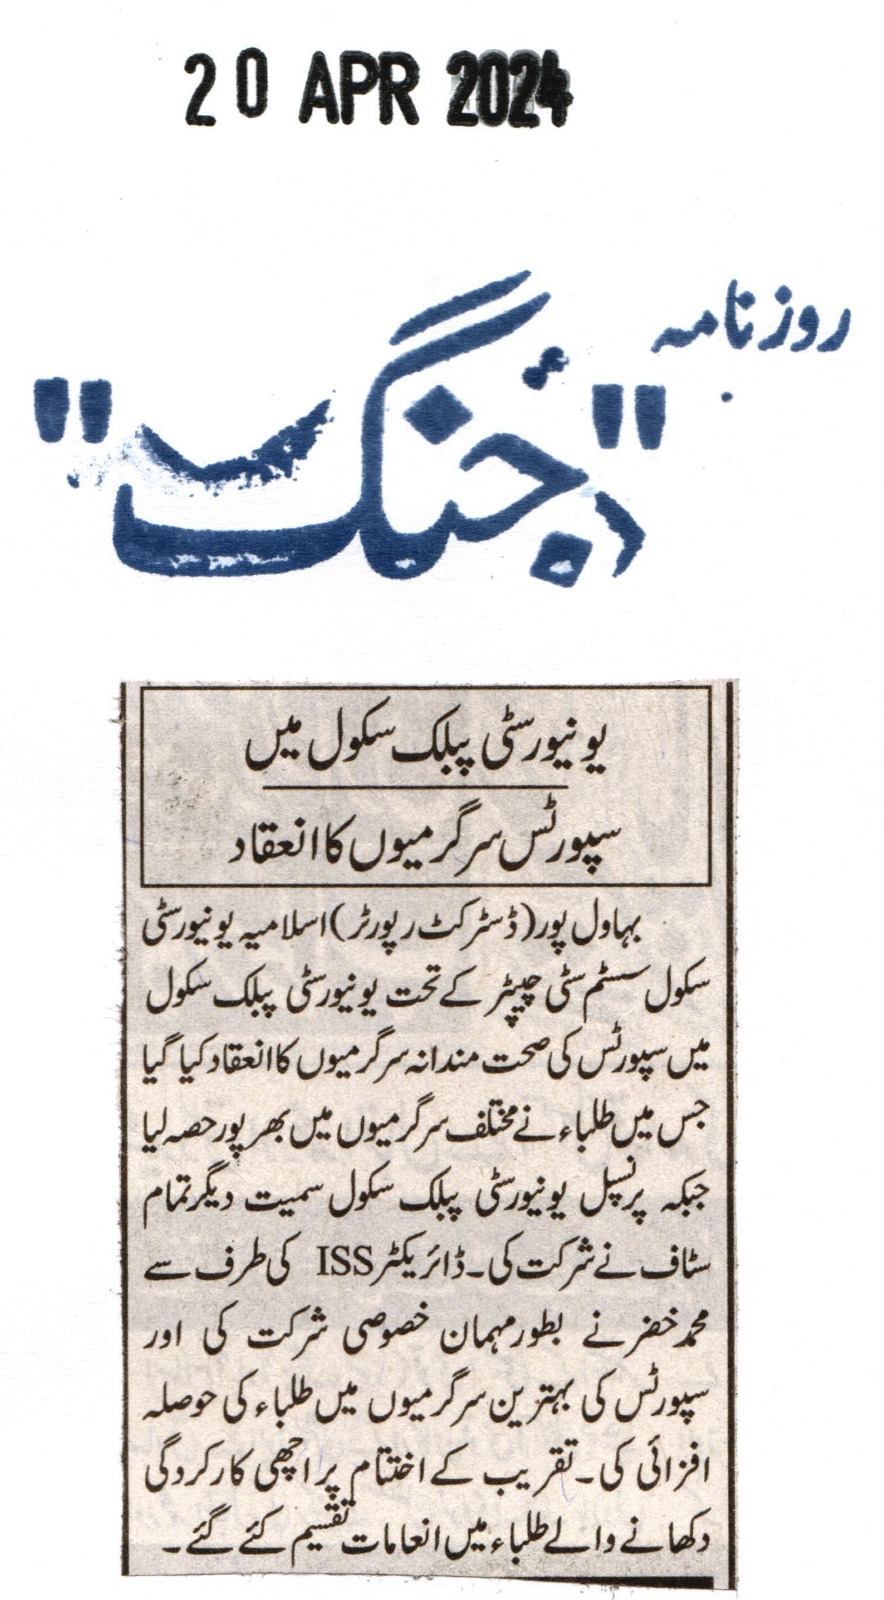 20 APR 2024
روزنامہ
"جنگ"
یونیورسٹی پبلک سکول میں
سپورٹس سرگرمیوں کا انعقاد
بہاول پور (ڈسٹرکٹ رپورٹر) اسلامیہ یونیورسٹی
سکول سسٹم سٹی چیپٹر کے تحت یونیورسٹی پبلک سکول
میں سپورٹس کی صحت مندانہ سرگرمیوں کا انعقاد کیا گیا
جس میں طلباء نے مختلف سرگرمیوں میں بھرپور حصہ لیا
جبکہ پرنسپل یونیورسٹی پبلک سکول سمیت دیگر تمام
سٹاف نے شرکت کی۔ ڈائریکٹر ISS کی طرف سے
محمد خضر نے بطور مہمان خصوصی شرکت کی اور
سپورٹس کی بہترین سرگرمیوں میں طلباء کی حوصلہ
افزائی کی۔ تقریب کے اختتام پر اچھی کارکردگی
دکھانے والے طلباء میں انعامات تقسیم کئے گئے۔